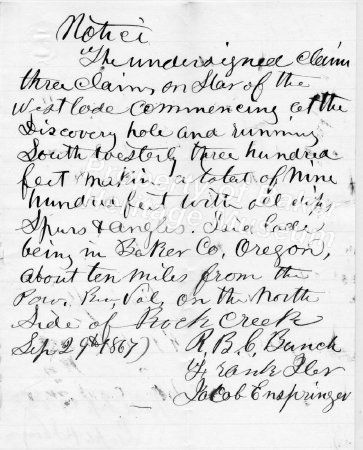 Notice
The undersigned claim
three claims on Star of the
West lode commencing at the
Discovery hole and running
South westerly three hundred
feet making a total of nine
hundred feet with all dips
Spurs & angles. Said lode
being in Baker Co, Oregon,
about ten miles from the
Pow. Riv. Val, on the North
Side of Rock Creek
Sep 29th 1867)
R. B. C. Bunch
Frank
Jacob Enspringer